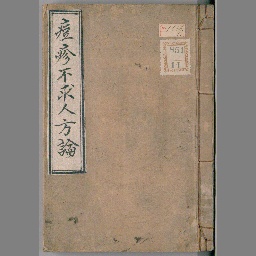 痘疹不求人方論